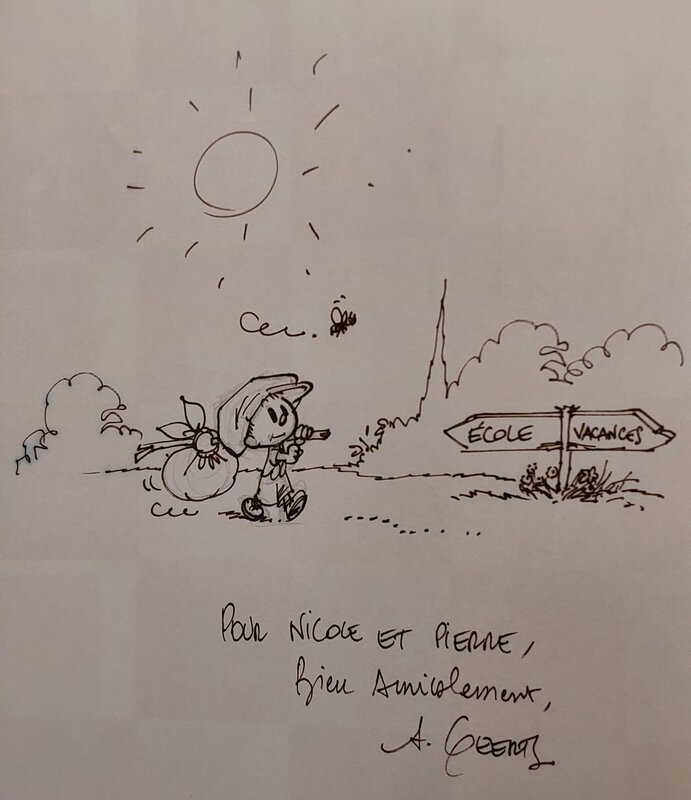 ÉCOLE
VACANCES
POUR NICOLE ET PIERRE,
Bien Amicalement,
A. GEERTS